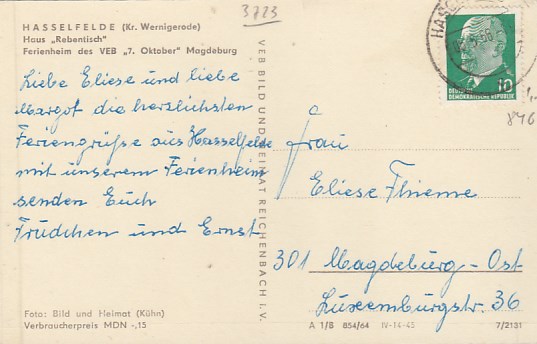 3723
HASSELFELDE (Kr. Wernigerode)
Haus „Rebentisch"
Ferienheim des VEB „7. Oktober" Magdeburg
Liebe Eliese und liebe
Margot die herzlichsten
Feriengrüße aus Hasselfelde
mit unserem Ferienheim
senden Euch
Trudchen und Ernst
Foto: Bild und Heimat (Kühn)
Verbraucherpreis MDN -,15
VEB BILD UND HEIMAT REICHENBACH I. V.
10
DEUTSCHE
DEMOKRATISCHE REPUBLIK
846
Frau
Eliese Thieme
301 Magdeburg-Ost
Luxemburgstr. 36
A 1/B 854/64 IV-14-45 7/2131